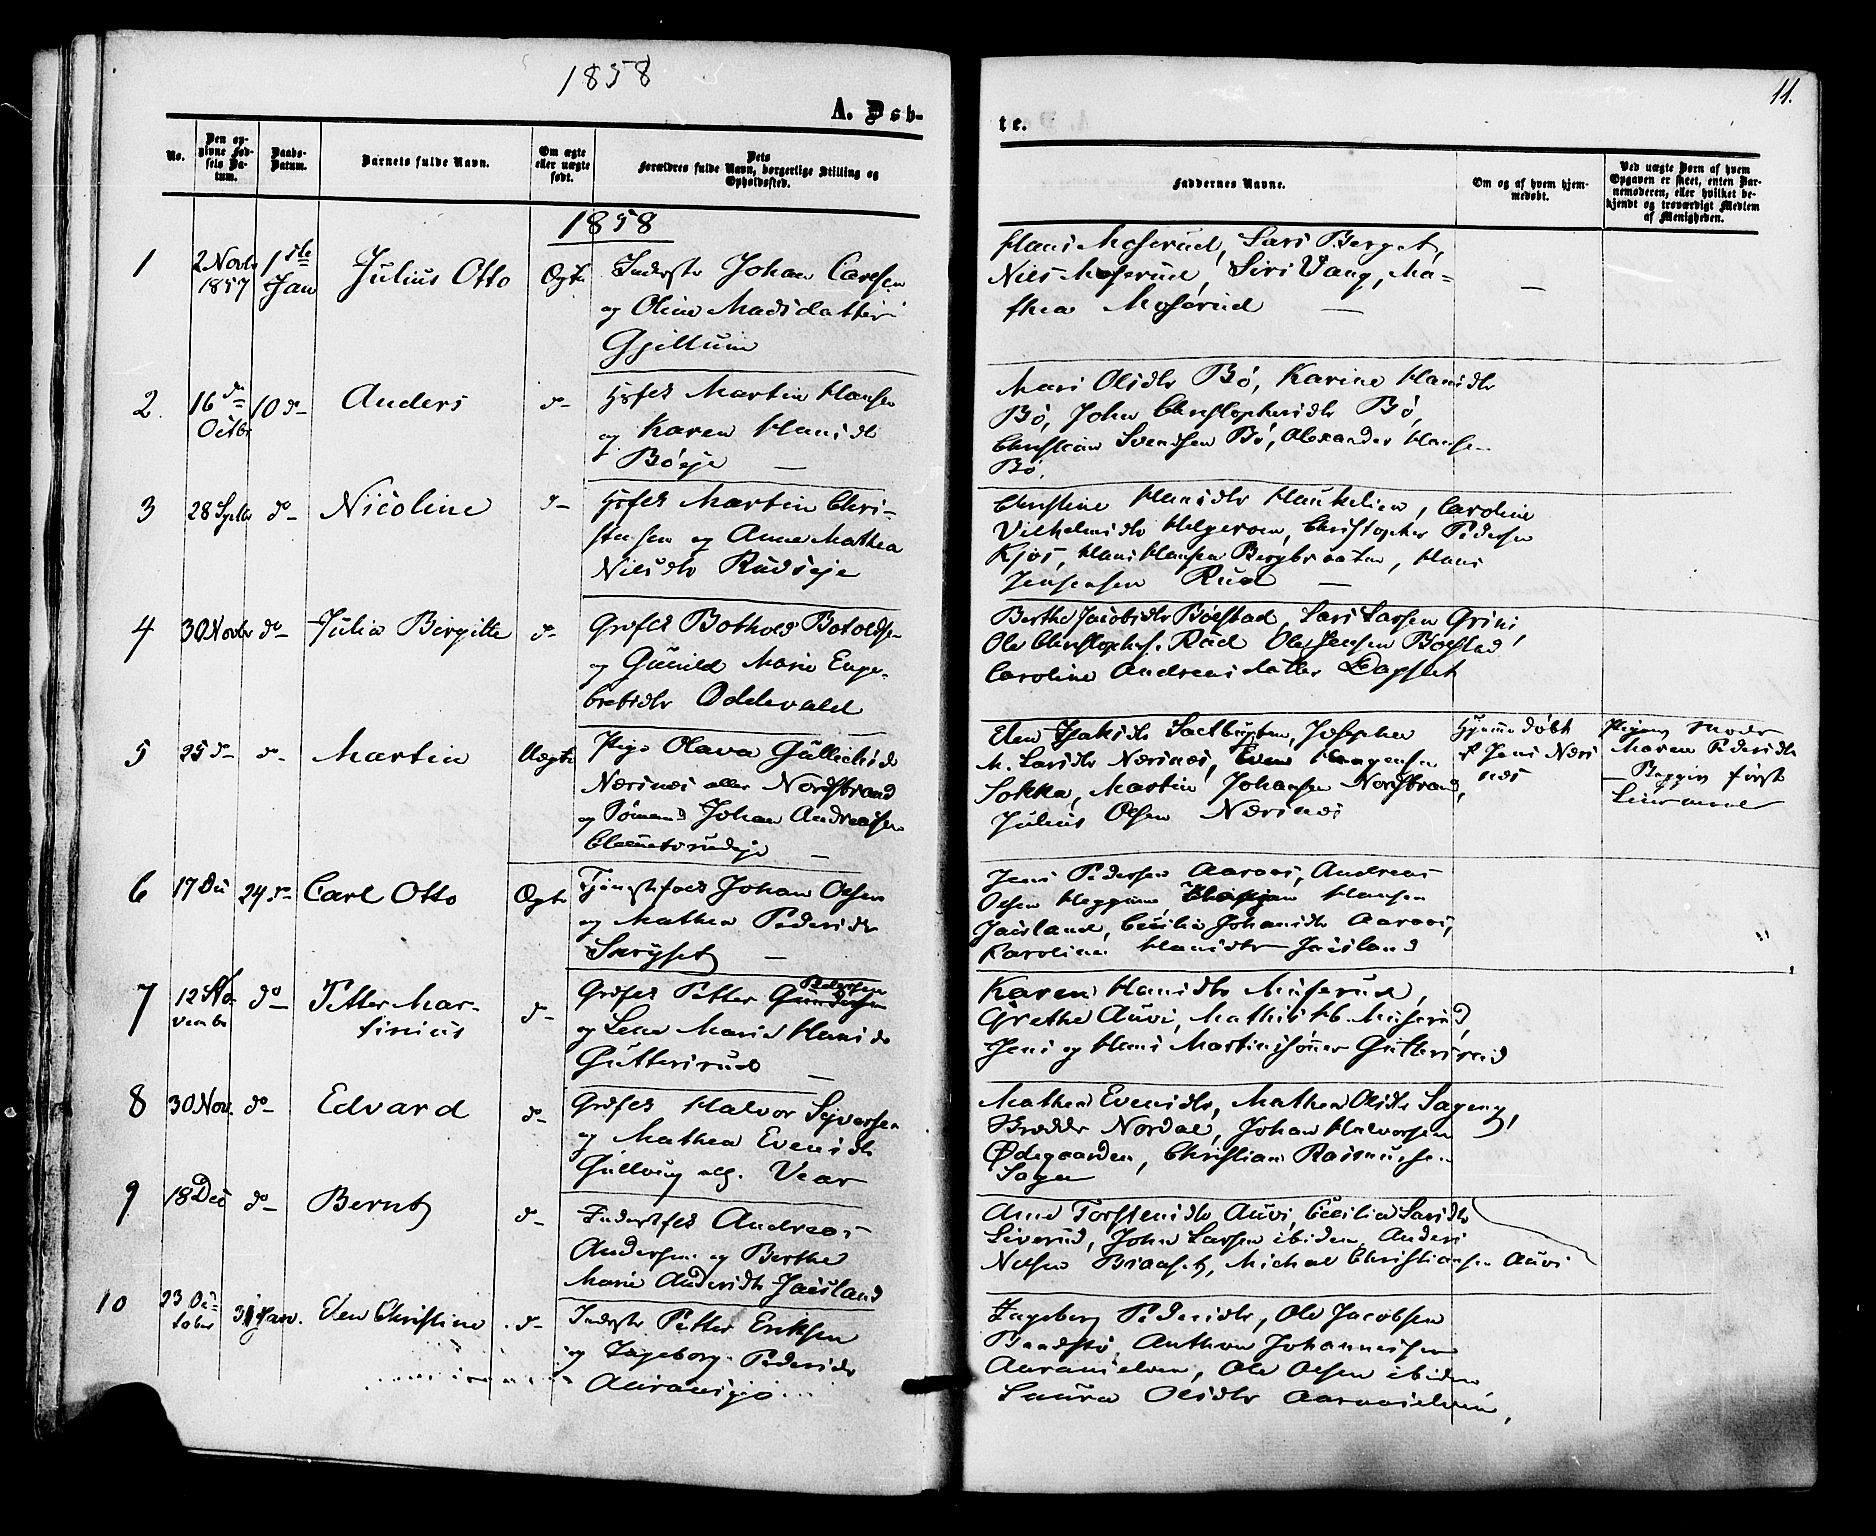 1858
11.
A. Døb-
te.
No.
Den op-
givne Fød-
sels Da-
tum.
Daabs-
Datum.
Barnets fulde Navn.
Om ægte
eller uægte
født.
Dets
Forældres fulde Navn, borgerlige Stilling og
Opholdssted.
Faddernes Navne.
Om og af hvem hjem-
medøbt.
Ved uægte Børn af hvem
Opgaven er skeet, enten Bar-
nemoderen, eller hvilket be-
kjendt og troværdigt Medlem
af Menigheden.
1858
1
2 Novbr
1857
1ste
Jan
Julius Otto
Ægte
Inderste Johan Carlsen
og Oline Madsdatter
Gjellum
Hans Moserud, Lars Berget,
Nils Moserud, Siri Vang, Ma-
thea Moserud —
—
2.
16 de
Octbr
10 do
Anders
do
Hsfk Martin Hansen
og Karen Hansdr
Bøeje —
Mari Olsdtr Bø, Karine Hansdtr
Bø, John Christophersdtr Bø,
Christian Svendsen Bø, Alexander Hansen
Bø
3
28 Septbr
do
Nicoline
do
Hsfk Martin Chri-
stensen og Anne Mathea
Nilsdtr Rudseje
Christine Hansdtr Haukelien, Caroline
Vilhelmsdtr Helgeroen, Christopher Pedersen
Kjos, Hans Hansen Bergbraaten, Hans
Jensensen Rud —
4
30 Novbr
do
Julia Birgitte
do
Grdfk Bothold Botoldsen
og Gunild Marie Enge-
bretsdtr Oddevald
Berthe Jacobsdtr Bølstad, Lars Larsen Grini
Ole Christophs. Rud Ole Jensen Bølstad
Caroline Andreasdatter Dapslet
5
25 do
do
Martin
Uægte
Pige Olava Gullichsd
Nærsnes eller Nordstrand
og Sømand Johan Andreasen
Clemetsrudeje —
Elen Isaksdtr Sætbugten, Josephe
M. Larsdtr Nærsnes, Even Haagensen
Sokka, Martin Johansen Nordstrand,
Julius Olsen Nærsnes
Hjemmedøbt
af Jens Nærs
nes
Pigens Moder
Maren Pedersdtr
6
17 De
24 do
Carl Otto
Ægte
Tjenestfolk Johan Olsen
og Mathea Pedersdtr
Skryset —
Jens Pedersen Aaraas, Andreas
Olsen Heggum, Christian Hansen
Jaisland, Cecilia Johansdtr Aaraas,
Karoline Hansdtr Jaisland
7
12 No-
vembr
do
Petter Mar-
tinius
do
Grdfk Petter Gundersen
og Lene Marie Hansdr
Guttersrud —
Karen Hansdtr Muserud,
Grethe Auvi, Mathis Hb. Muserud,
Jens og Hans Martinsønner Guttersrud
8
30 Nov.
do
Edvard
do
Grdfk Halvor Syversen
og Mathea Evensdtr
Gullaug allg. Vear
Mathea Evensdtr, Mathea Olsdtr Sageng,
Nordal, Johan Halvorsen
Ødegaarden, Christian Rasmusen
Sagen
9
18 Dec
do
Bernt
do
Inderstfolk Andreas
Andersen og Berthe
Marie Andersdtr Jaisland
Anne Torstensdtr Auvi, Cecilia Larsdtr
Liverud, John Larsen ibidem, Anders
Nelsen Braaset, Michal Christiansen Auvi
10
23 Oc-
tober
31 Jan.
Elen Christine
do
Inderste Petter Eriksen
og Ingeborg Pedersdtr
Ingeborg Pedersdtr, Ole Jacobsen
Anthon Johannesen
Aaraaselven, Ole Olsen ibidem,
Laura Olsdtr Aaraaselven,